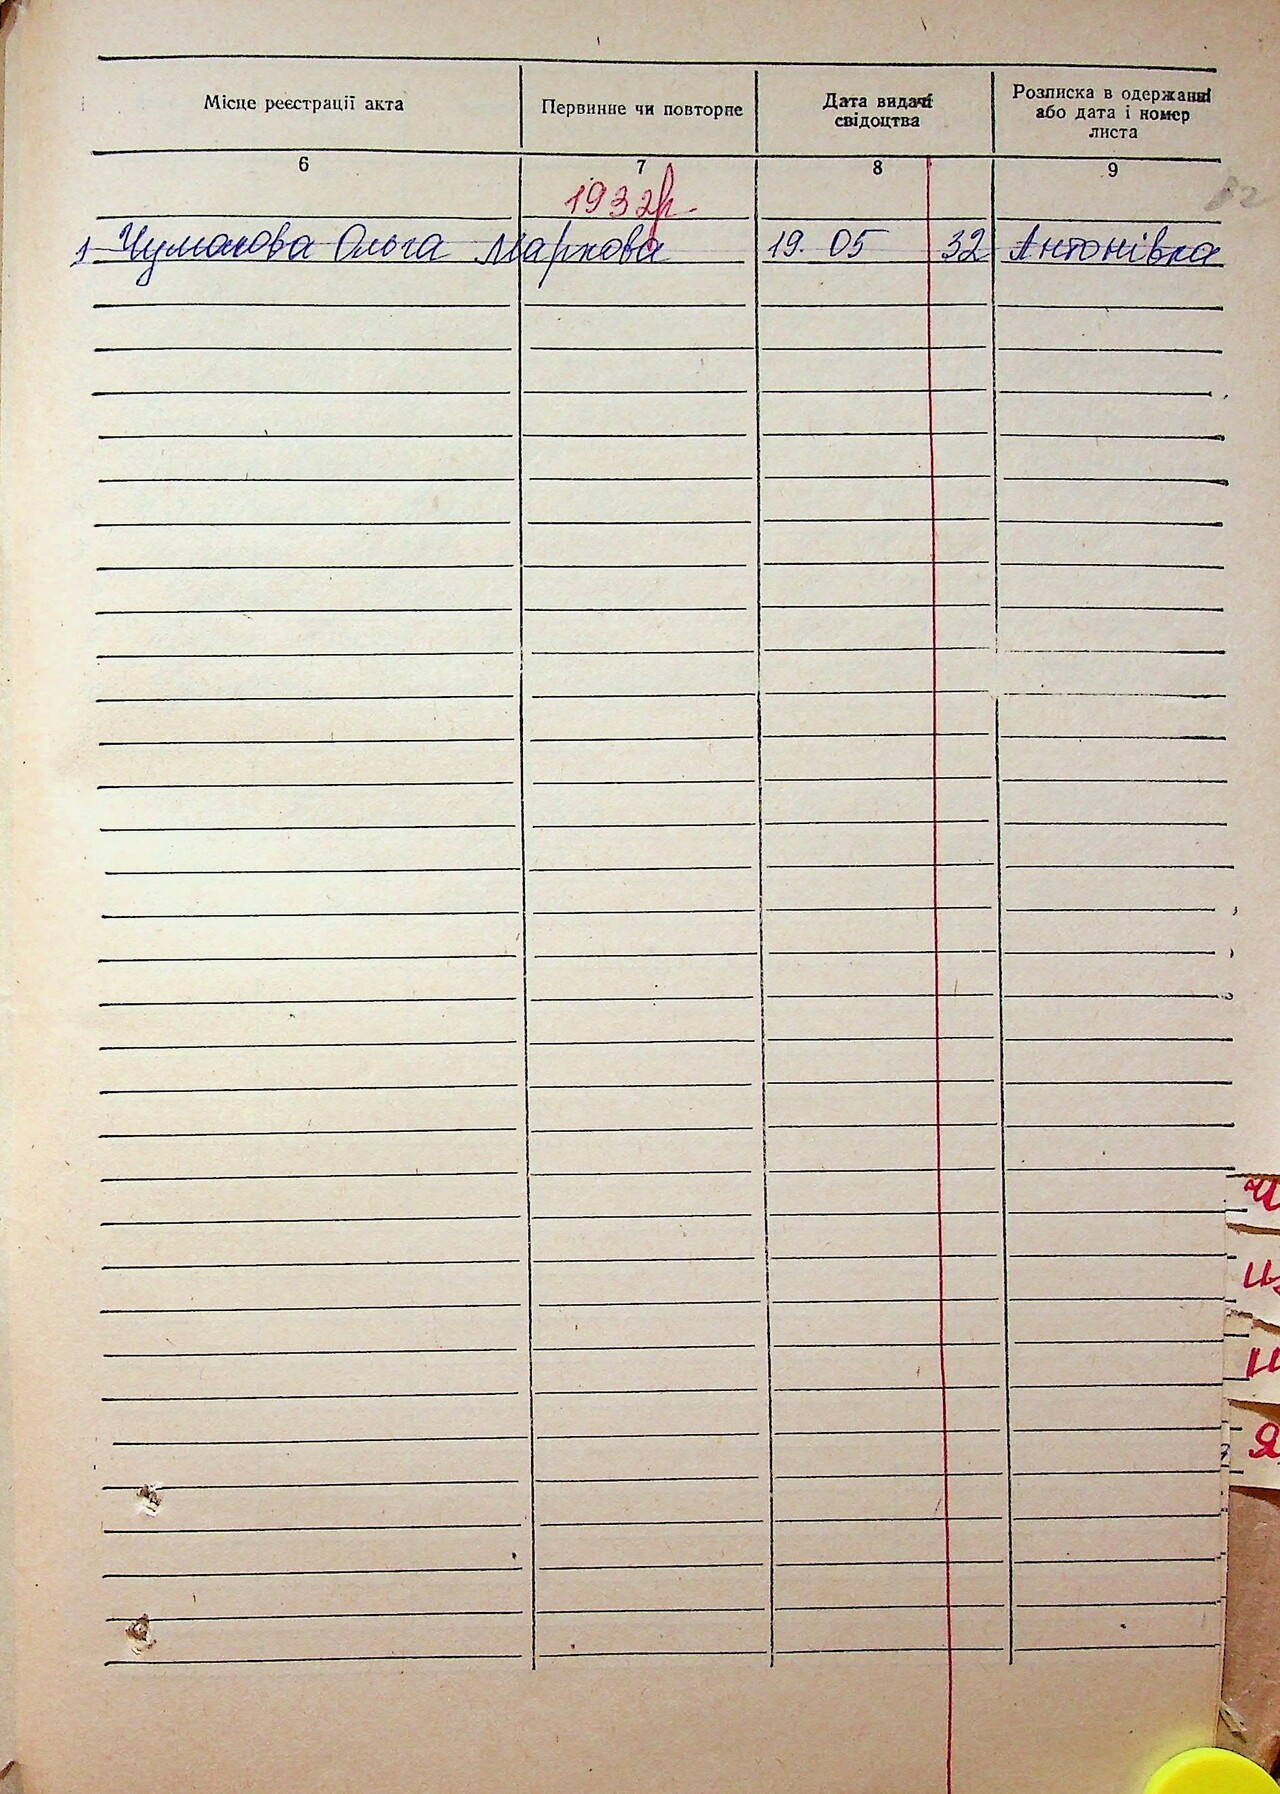 Місце реєстрації акта Первинне чи повторне Дата видачі свідоцтва Розписка в одержанні або дата і номер листа
6 7 8 9
1932р
82
1 Чумакова Ольга Маркова 19. 05 32 Антонівка
Ч
Ш
Я